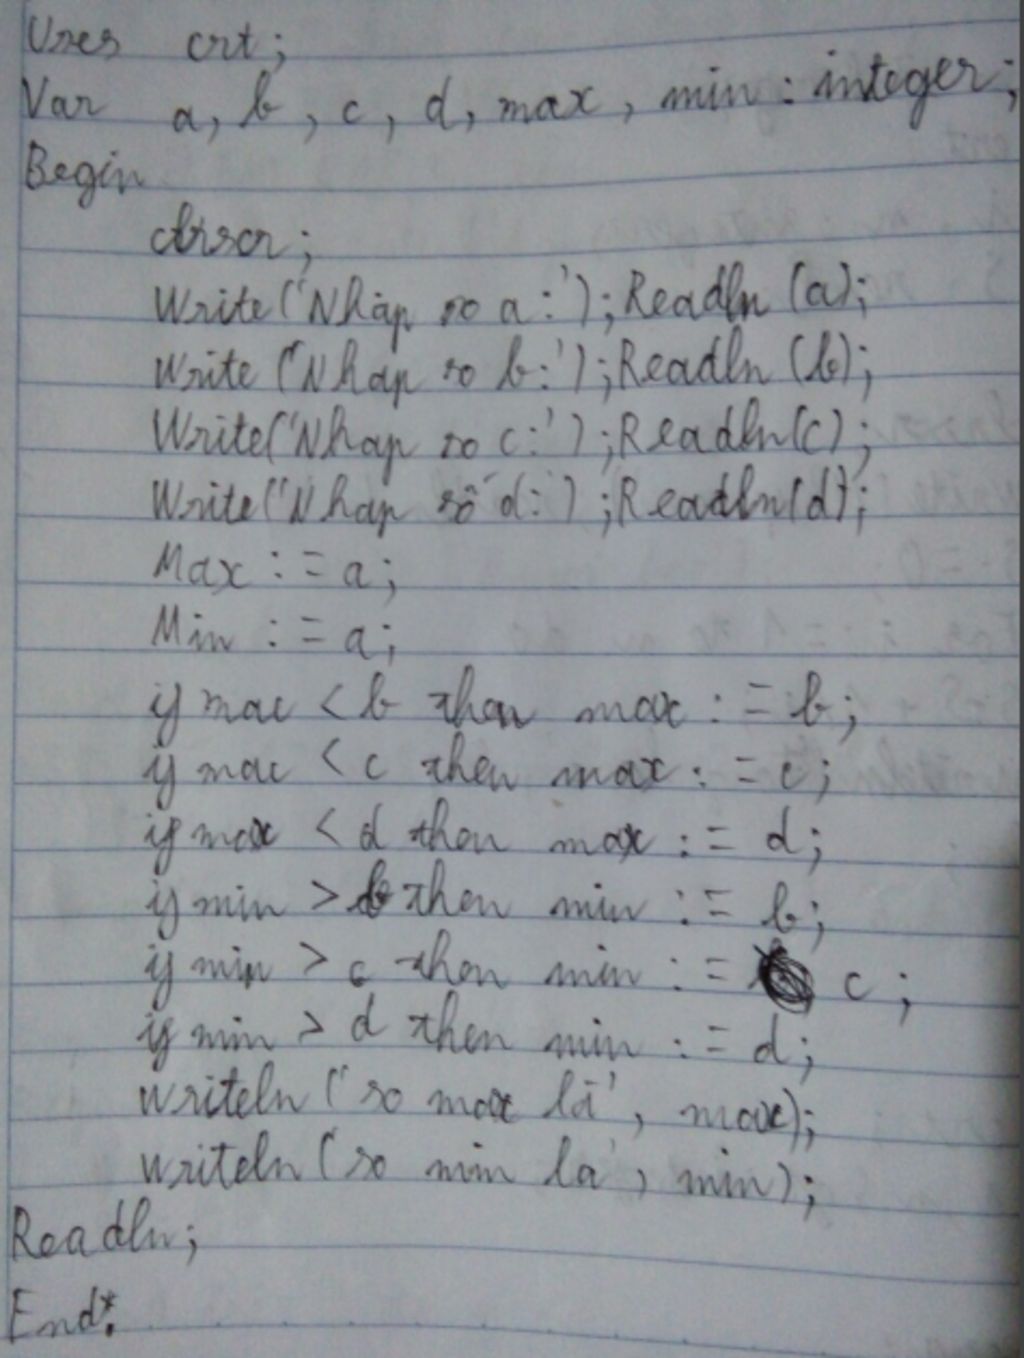 Uses crt;
Var a, b, c, d, max, min : integer;
Begin
clrscr;
Write('Nhập so a:'); Readln (a);
Write ('Nhap so b:'); Readln (b);
Write('Nhap so c:'); Readln(c);
Write('Nhap số d:'); Readln(d);
Max := a;
Min := a;
if max < b then max := b;
if max < c then max := c;
if max < d then max := d;
if min > b then min := b;
if min > c then min := c;
if min > d then min := d;
writeln ('so max là', max);
writeln ('so min la', min);
Readln;
End.